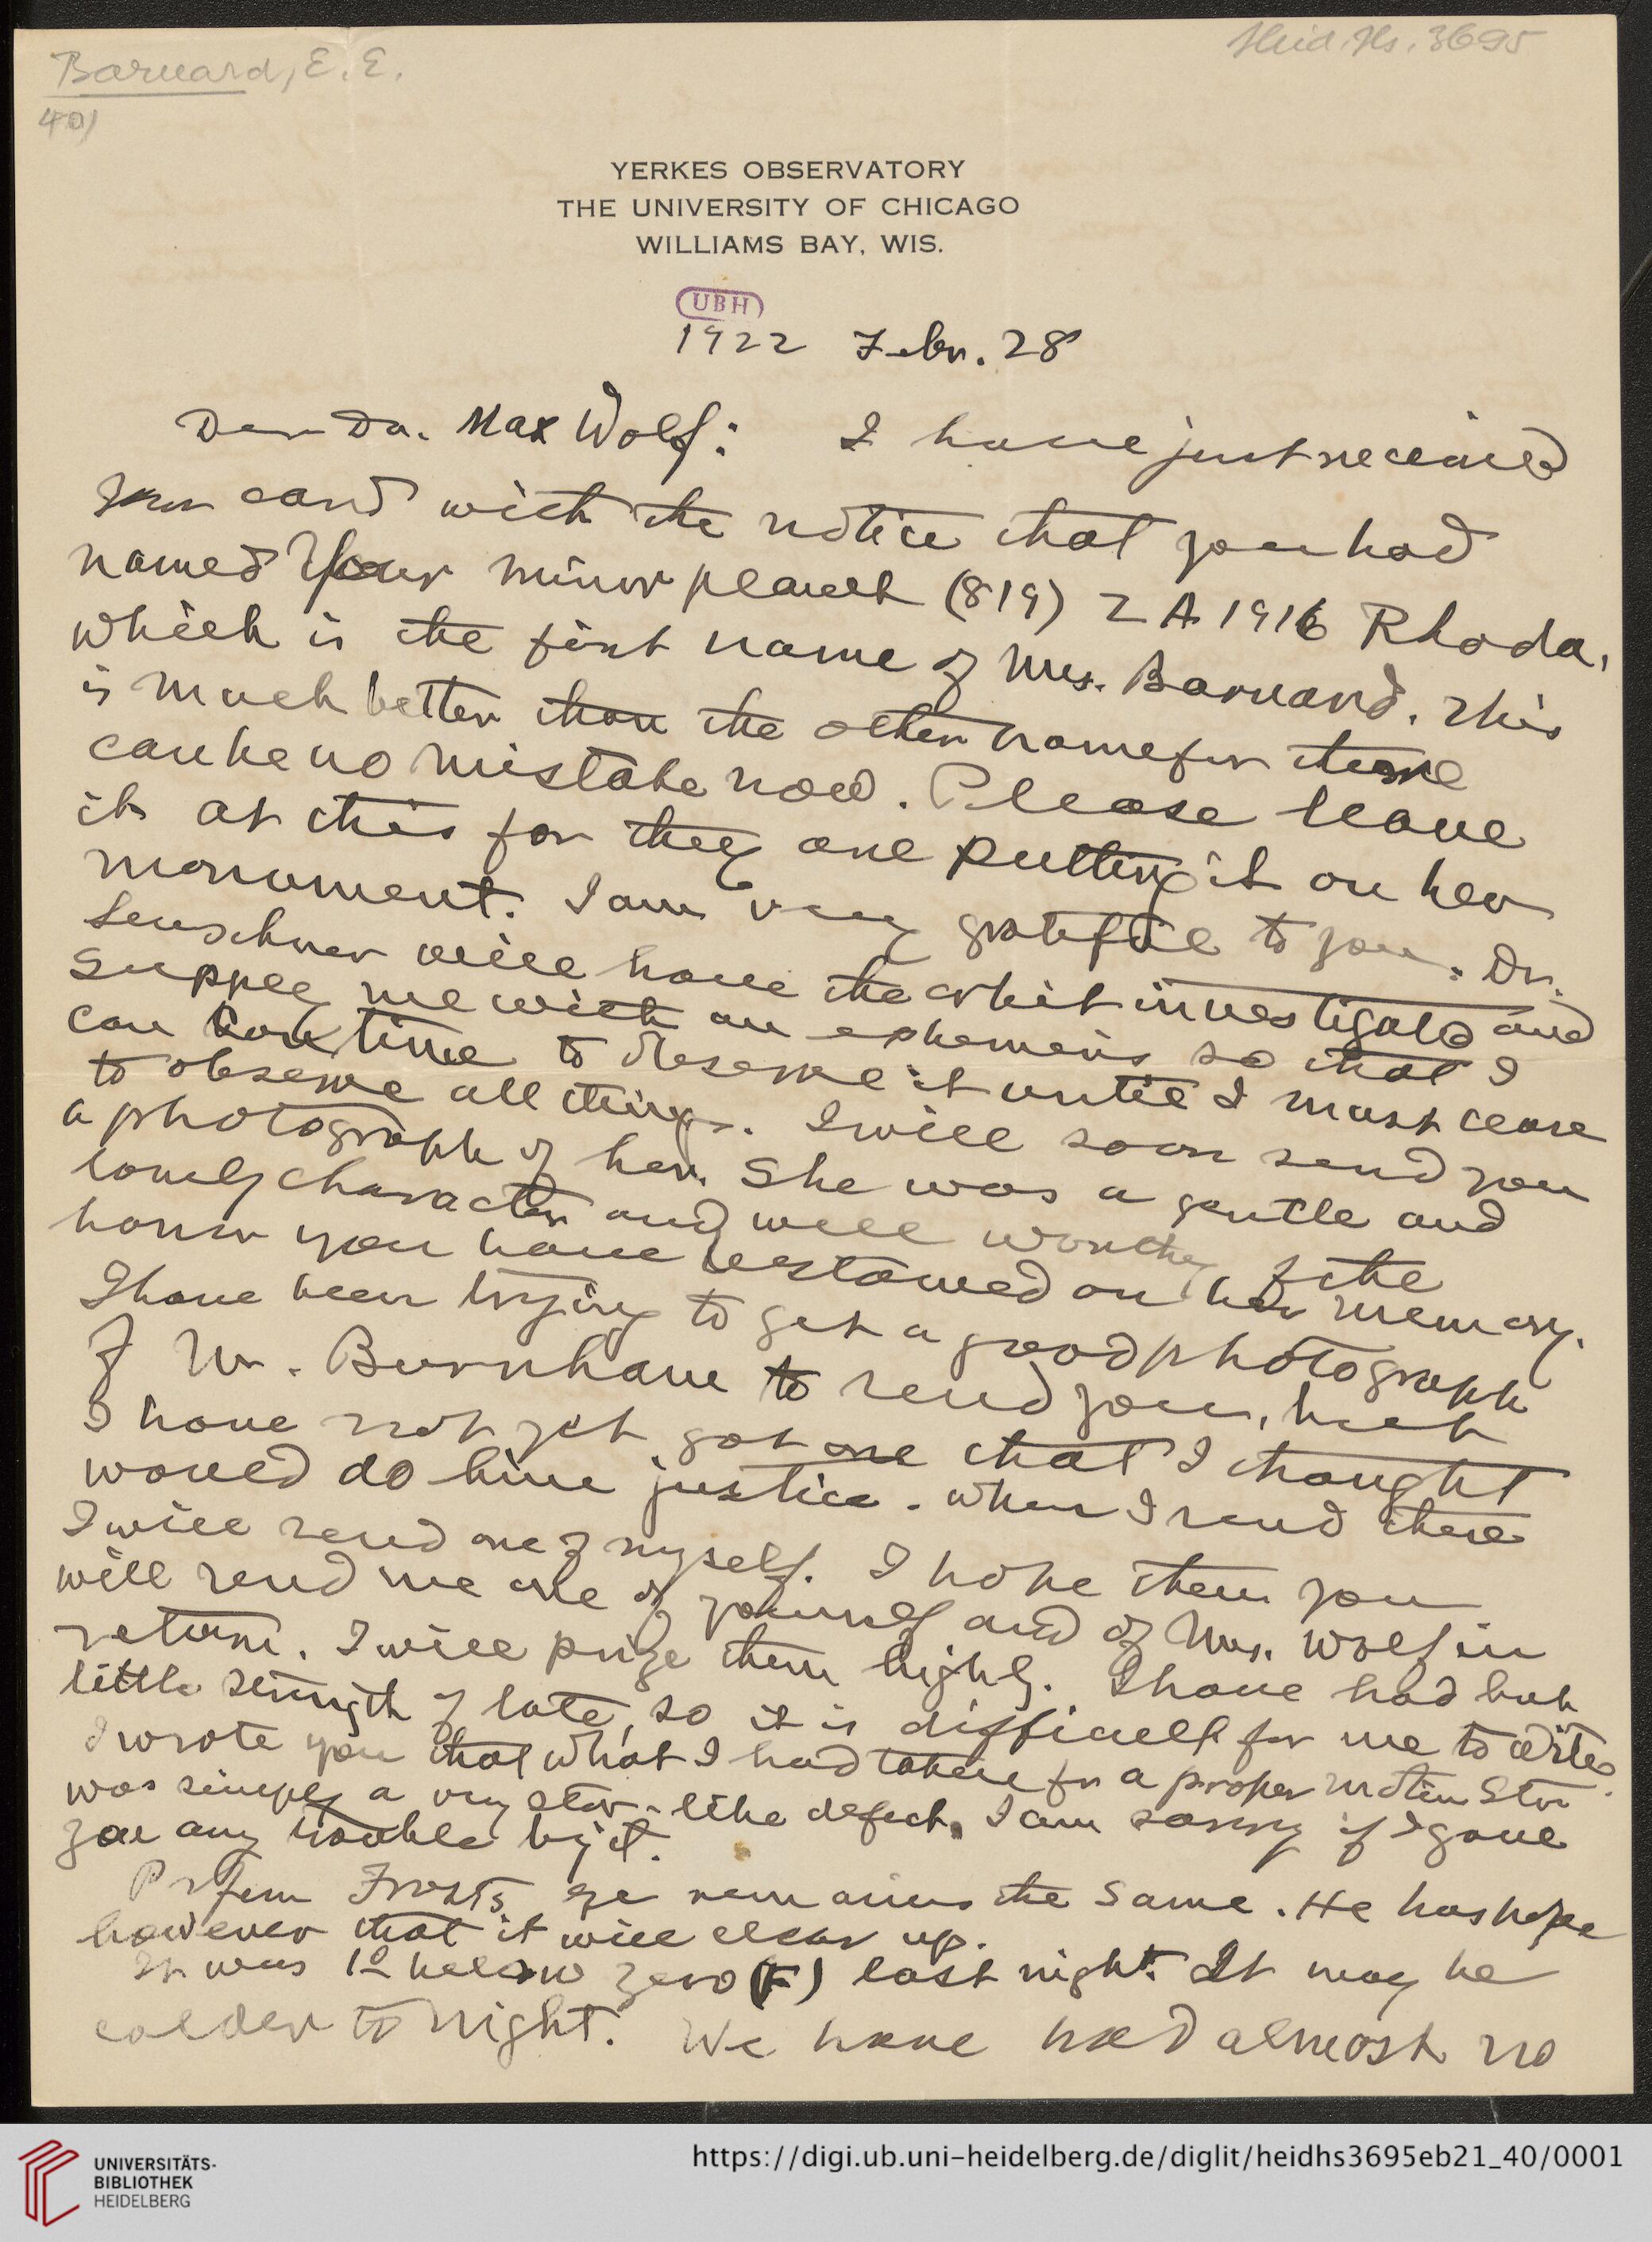 Barnard, E. E.
Heid. Hs. 3695
40)
YERKES OBSERVATORY
THE UNIVERSITY OF CHICAGO
WILLIAMS BAY, WIS.
UBH
1922 Febr. 28
Dear Dr. Max Wolf: I have just received
your card with the notice that you had
named your minor planet (819) ZA 1916 Rhoda,
which is the first name of Mrs. Barnard. This
is much better than the other name for there
can be no mistake now. Please leave
it at this for they are putting it on her
monument. I am very grateful to you. Dr.
Leuschner will have the orbit investigated and
supply me with an ephemeris so that I
can continue to observe it until I must cease
to observe all things. I will soon send you
a photograph of her. She was a gentle and
lovely character and well worthy of the
honor you have bestowed on her memory.
I have been trying to get a good photograph
of Mr. Burnham to send you, but
I have not yet got one that I thought
would do him justice. When I send these
I will send one of myself. I hope then you
will send me one of yourself and of Mrs. Wolf in
return. I will prize them highly. I have had but
little strength of late, so it is difficult for me to write.
I wrote you that what I had taken for a proper motion star
was simply a very star-like defect. I am sorry if I gave
you any trouble by it.
Professor Frosts eye remains the same. He has hope
however that it will clear up.
It was 1° below zero (F) last night. It may be
colder to night. We have had almost no
https://digi.ub.uni-heidelberg.de/diglit/heidhs3695eb21_40/0001
UNIVERSITÄTS-
BIBLIOTHEK
HEIDELBERG